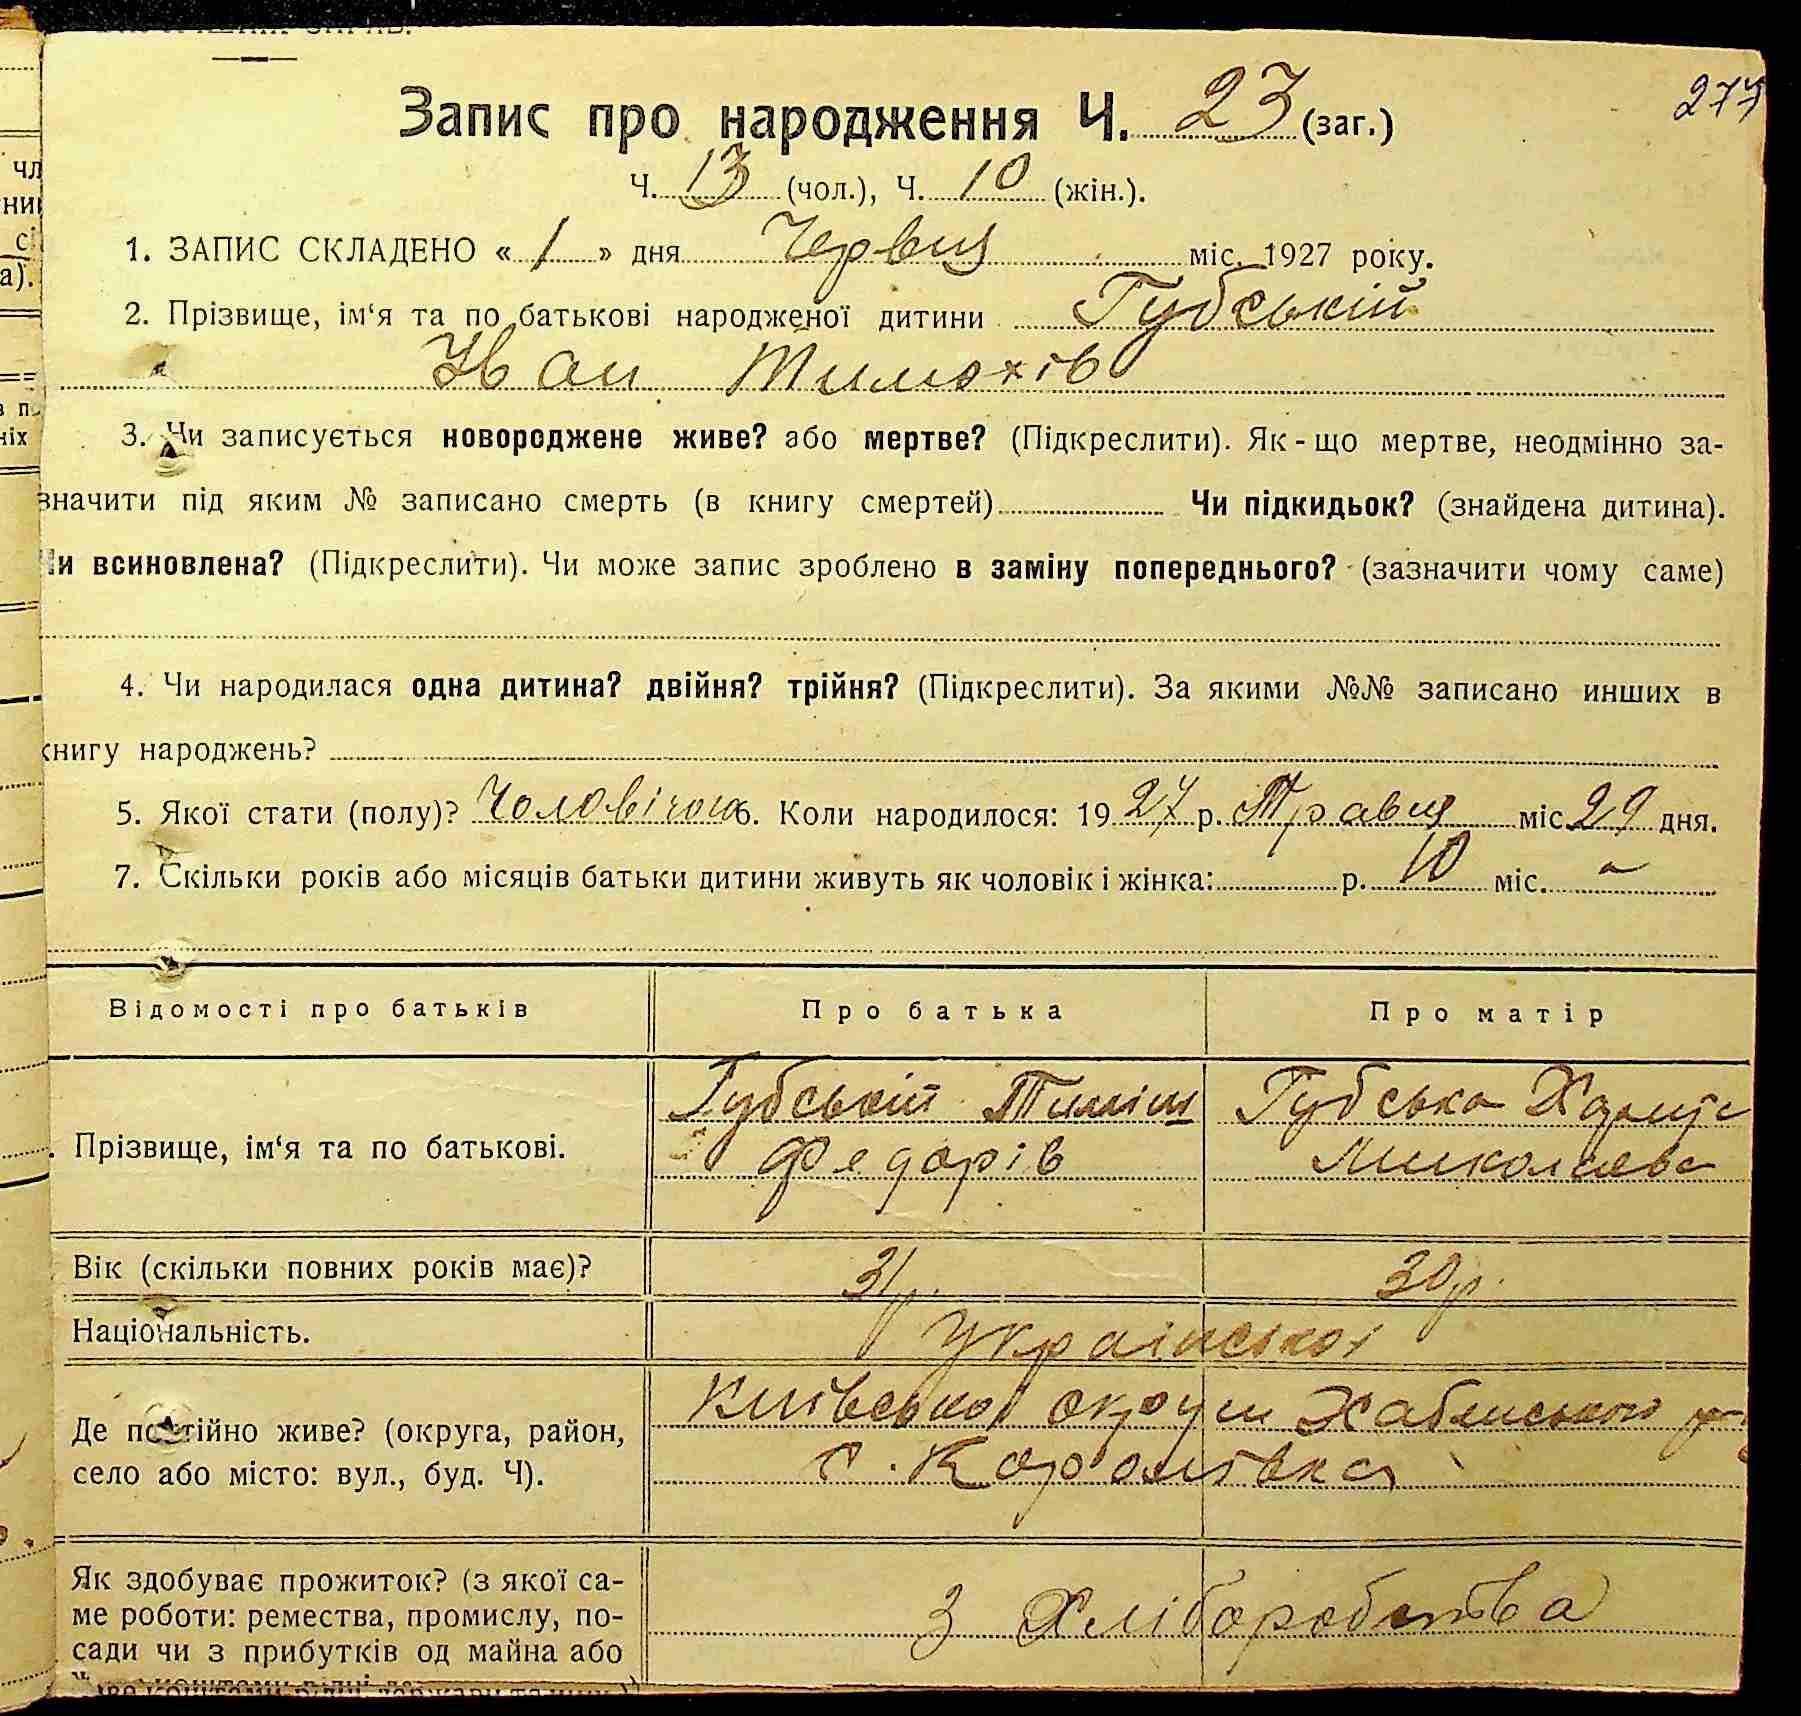 277
Запис про народження Ч. 23 (заг.)
Ч. 13 (чол.), Ч. 10 (жін.).
1. ЗАПИС СКЛАДЕНО « 1 » дня Червця міс. 1927 року.
2. Прізвище, ім‘я та по батькові народженої дитини Губській
Іван Тимохів
3. Чи записується новороджене живе? або мертве? (Підкреслити). Як-що мертве, неодмінно за-
значити під яким № записано смерть (в книгу смертей) Чи підкидьок? (знайдена дитина).
Чи всиновлена? (Підкреслити). Чи може запис зроблено в заміну попереднього? (зазначити чому саме)
4. Чи народилася одна дитина? двійня? трійня? (Підкреслити). За якими №№ записано инших в
книгу народжень?
5. Якої стати (полу)? Чоловічої 6. Коли народилося: 1927 р. Травця міс. 29 дня.
7. Скільки років або місяців батьки дитини живуть як чоловік і жінка: р. 10 міс. -
Відомості про батьків Про батька Про матір
Губській Тиміш Губська
Прізвище, ім‘я та по батькові. Федорів Миколаєва
Вік (скільки повних років має)? 31 р. 30 р.
Національність. Української
Київської округи Хабенського
Де постійно живе? (округа, район,
с. Королівка
село або місто: вул., буд. Ч).
Як здобуває прожиток? (з якої са-
ме роботи: ремества, промислу, по- З Хліборобства
сади чи з прибутків од майна або